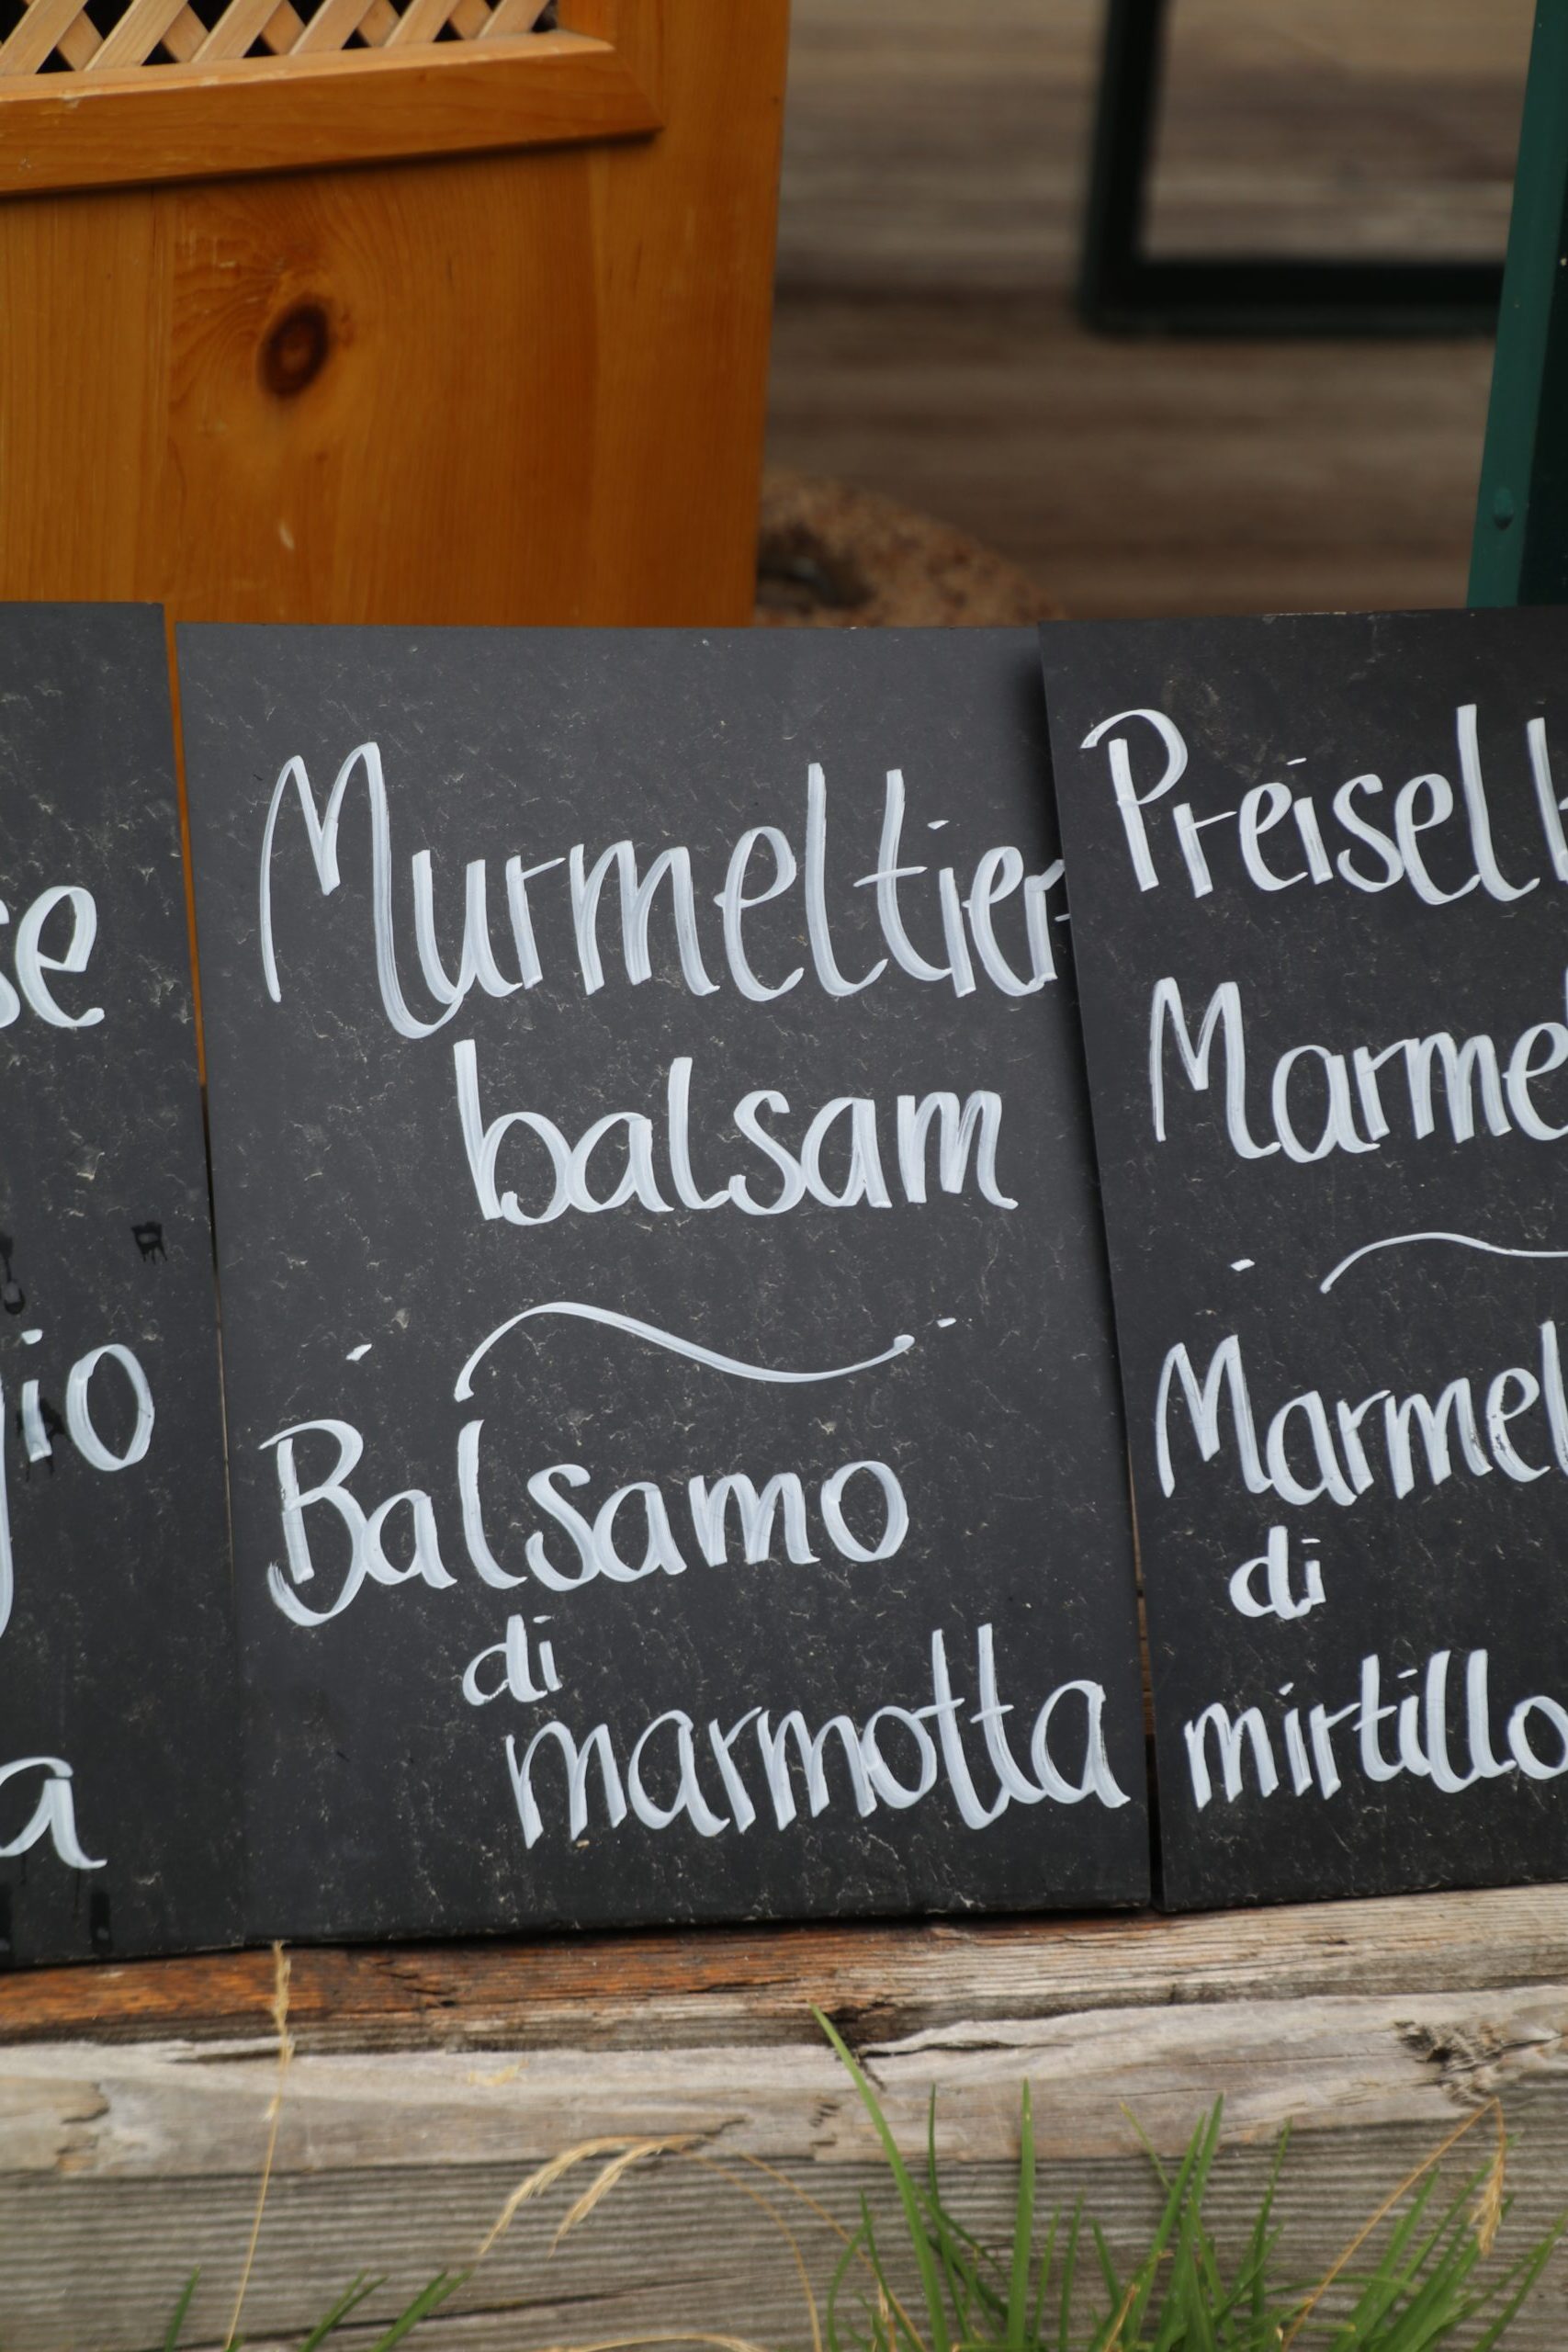 se
gio
a
Murmeltier-
balsam
Balsamo
di
marmotta
Preisel
Marmel
Marmel
di
mirtillo